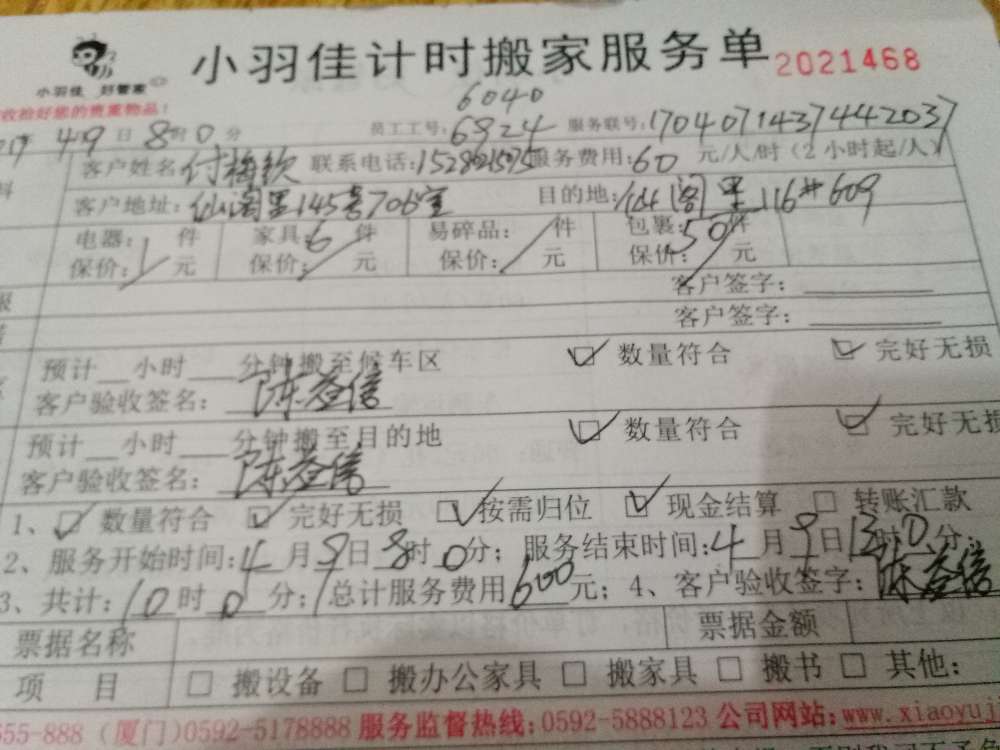 小羽佳计时搬家服务单 2021468
小羽佳 好管家
收拾好您的贵重物品!
6040
4月9日8时0分 员工工号:6824 服务联号:17040714374442037
客户姓名 付梅钦 联系电话: 服务费用:60 元/人/时(2小时起/人)
客户地址:仙阁里145号706室 目的地:仙阁里116#609
电器:1件 家具:6件 易碎品:/件 包裹:50件
保价:/元 保价:/元 保价:/元 保价:/元
客户签字:
客户签字:
预计__小时___分钟搬至候车区 ☑数量符合 ☑完好无损
客户验收签名:陈益信
预计__小时___分钟搬至目的地 ☑数量符合 ☑完好无损
客户验收签名:陈益信
1、☑数量符合 ☑完好无损 ☑按需归位 ☑现金结算 □ 转账汇款
2、服务开始时间:4月9日8时0分;服务结束时间:4月9日13时0分;
3、共计:10时0分;总计服务费用600元;4、客户验收签字:陈益信
票据名称 票据金额
项 目 □ 搬设备 □ 搬办公家具 □ 搬家具 □ 搬书 □ 其他:
555-888 (厦门)0592-5178888 服务监督热线:0592-5888123 公司网站:www.xiaoyuj